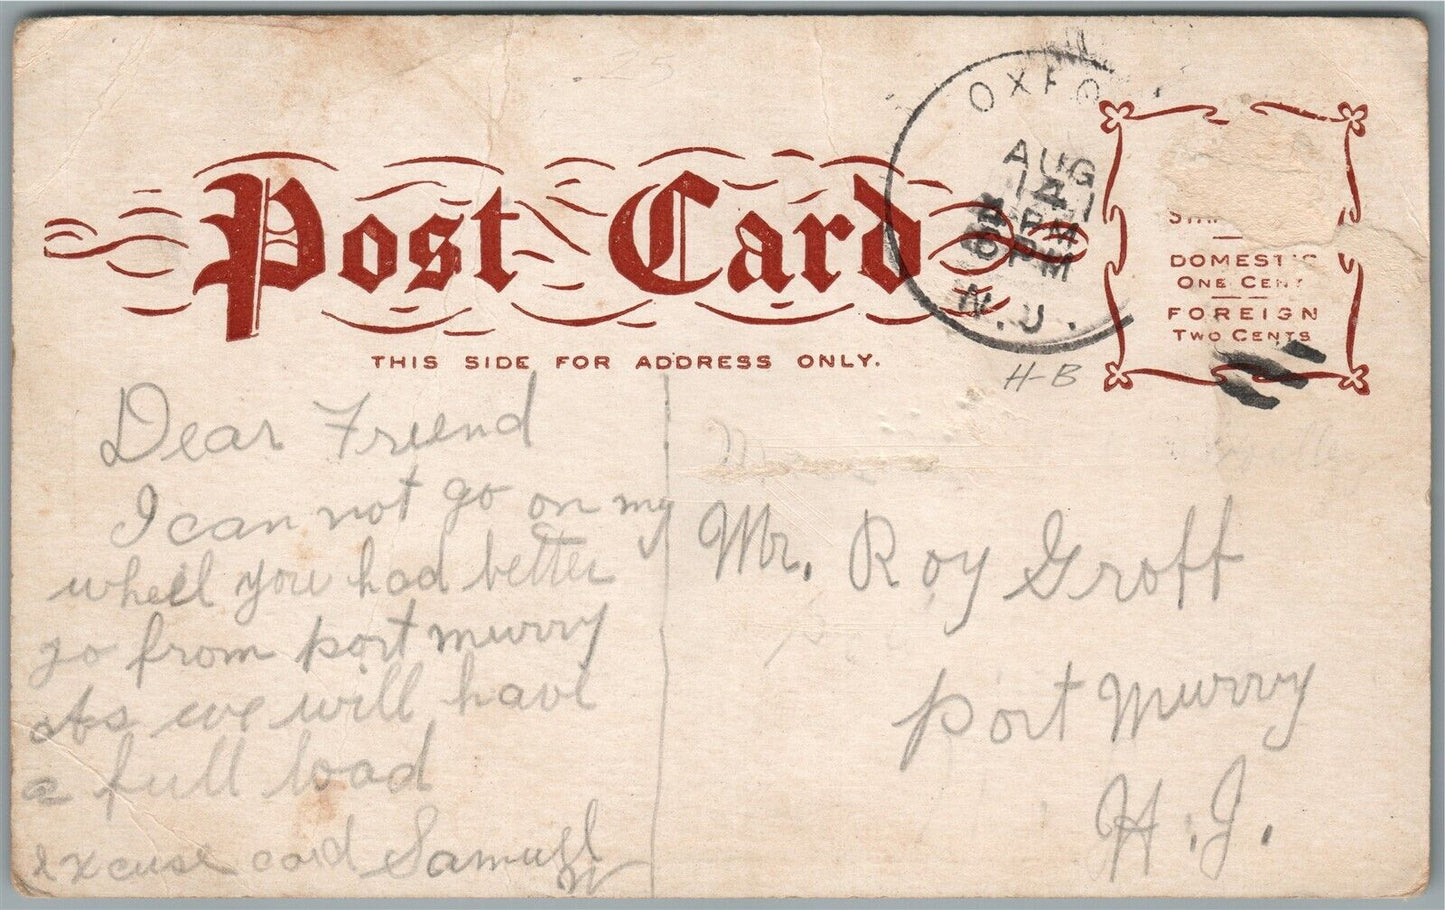 OXFO
AUG
14
PM
6 PM
N.J.
Post Card
THIS SIDE FOR ADDRESS ONLY.
DOMESTIC
ONE CENT
FOREIGN
TWO CENTS
H-B
Dear Friend
I can not go on my
wheel you had better
go from port murry
as we will have
a full load
excuse card Samuel
W
Mr. Roy Groff
port Murry
N.J.